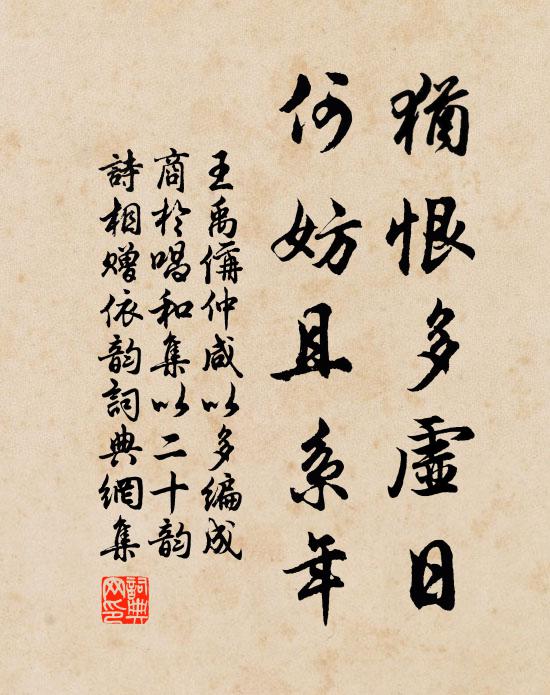 猶恨多虛日
何妨且系年
王禹偁仲咸以多編成
商於唱和集以二十韵
詩相贈依韵詞典網集
詞典網印